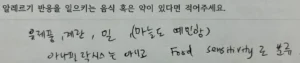 알레르기 반응을 일으키는 음식 혹은 약이 있다면 적어주세요.
유제품, 계란, 밀, (마늘도 예민함)
아나필락시스는 아니고 Food sensitivity로 분류